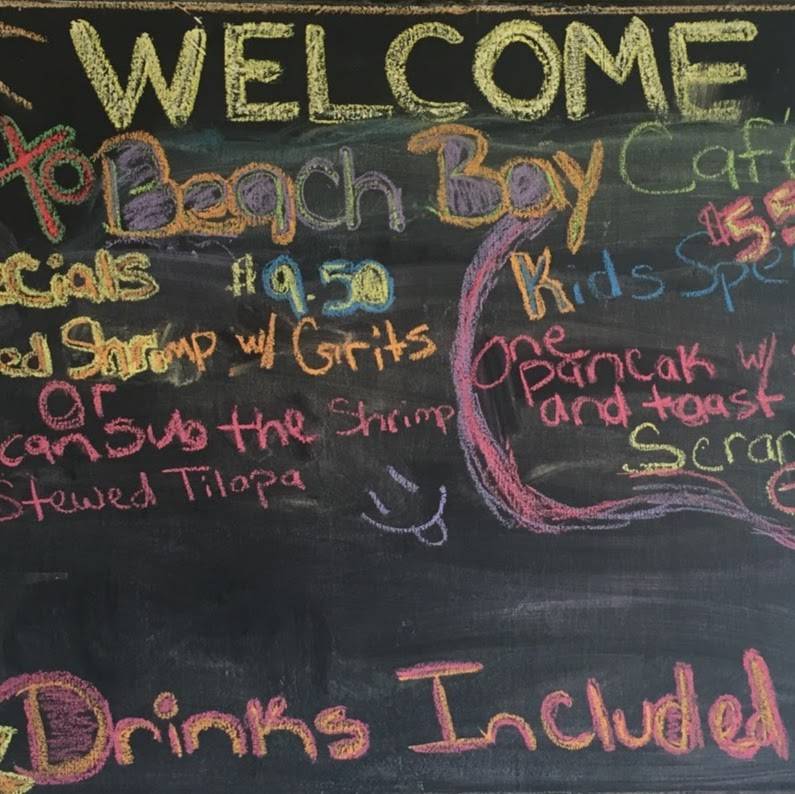 WELCOME
to Beach Bay Café
cials $9.50
ed Shrimp w/ Grits
or
can sub the Shrimp
Stewed Tilapa
$5.5
Kids Spe
One
pancak w/
and toast
Scran
Drinks Included